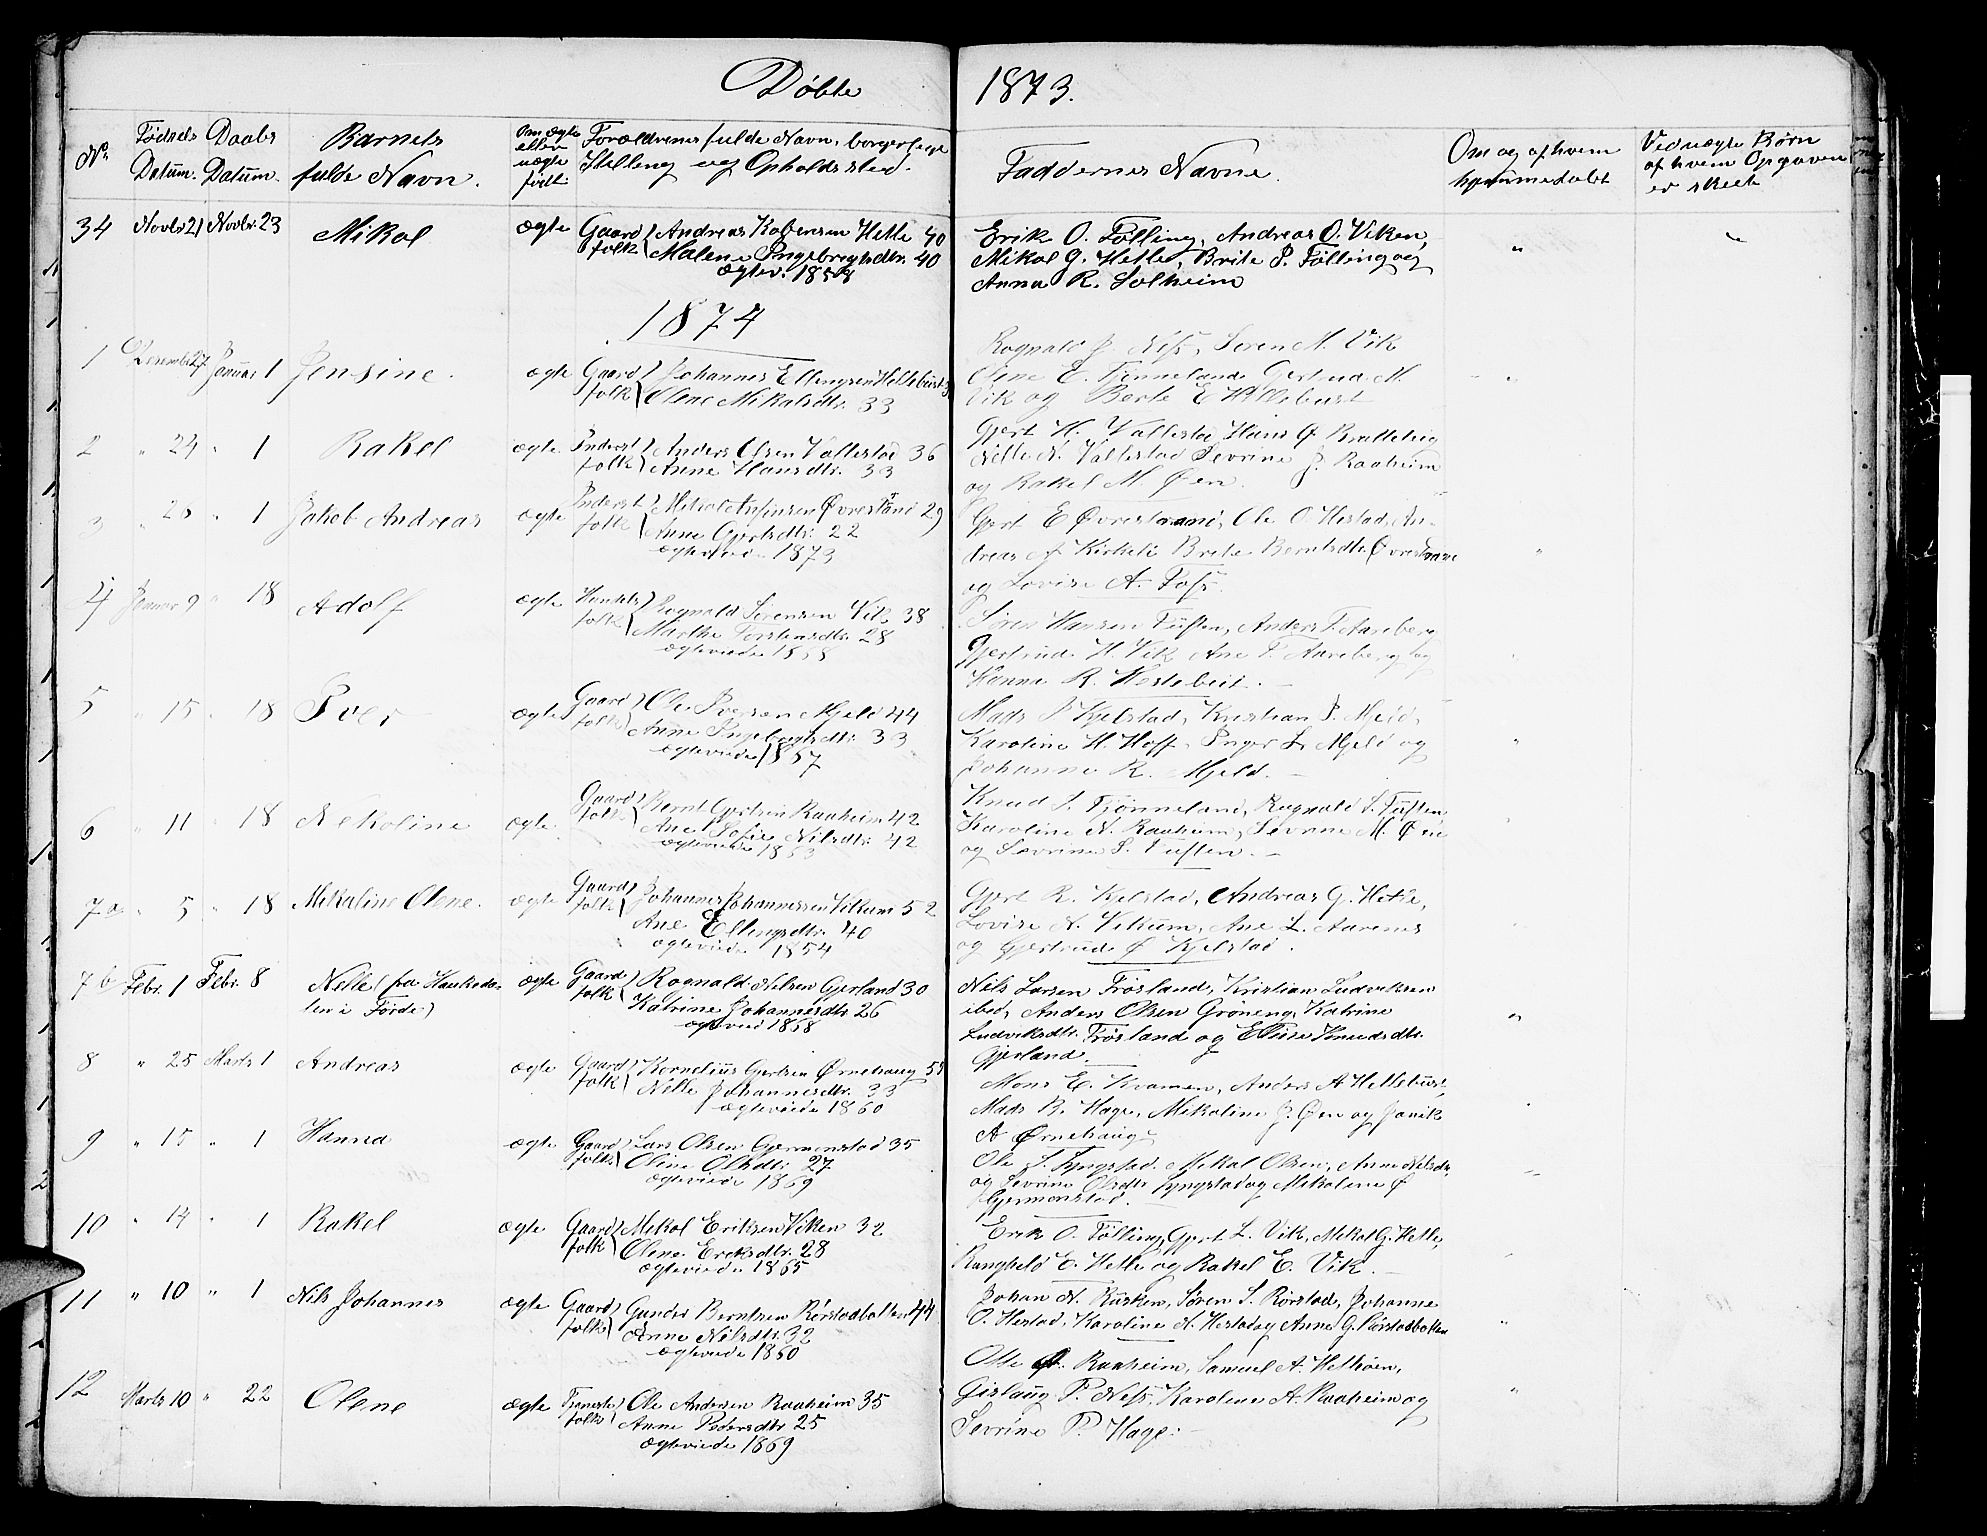 Døbte 1873.
No. Fødsels Datum. Daabs Datum. Barnets fulde Navn. Om ægte eller uægte født. Forældrenes fulde Navn, borgerlige Stilling og Opholdssted. Faddernes Navne. Om og af hvem hjemmedøbt Ved uægte Børn af hvem Opgaven er skeet
34 Novbr 21 Novbr. 23 Mikal ægte Gaardfolk Andreas Hetle 40
Malene Ingebrigtsdtr. 40
ægtev. 1858
Erik O. Følling, Andreas O. Viken,
Mikal G. Hetle, Brite P. Følling og
Anna R. Solheim
1874
1 Desember 27 Januar 1 Jensine. ægte Gaardfolk Johannes Ellingsen Hellebust
Olene Mikalsdtr. 33
Rognald J. Nefs, Søren M. Vik
Olene E. Tønneland Gertrud M.
Vik og Berte E Hellebust
2 " 29 " 1 Rakel ægte Inderstfolk Anders Olsen Vallestad 36
Anne Hansdtr. 33
Gjert H. Vallestad, Hans
Nille N. Vallestad Sevrine J. Raaheim
og Rakel M. Øen.
3 " 26 " 1 Jakob Andreas ægte Inderstfolk Mikal Ansinsen Øvrestrand 29
Anne Gjertsdtr. 22
ægteviede 1873
Gjert E Øvrestrand, Ole O. Hestad, An-
dreas Kirkeli Brite Berntsdtr Øvrestrand
og Lovise A. Fofs.
4 Januar 9 " 18 Adolf ægte Rognald Sørensen Vik 38
Marthe Torstensdtr. 28
ægteviede 1868
Søren Hansen Tuften, Anders T. Aareberg
Gjertrud H. Vik Ane T. Aareberg og
Hanna R. Hestebeit.
5 " 15 " 18 Iver ægte Gaardfolk Ole Iversen Mjeld 44
Anne Ingebrigtsdtr. 33
ægteviede 1867
Mads P Kjelstad, Kristian P. Mjeld,
Karoline H. Hoff, Inger L. Mjeld og
Johanne R. Mjeld.
6 " 11 " 18 Nikoline ægte Gaardfolk Bernt Gjertsen Raaheim 42
Ane Sofie Nilsdtr. 42
ægteviede 1853
Knud S. Tjønneland, Rognald S. Tuften,
Karoline N. Raaheim, Sevrine M. Øen
og Sevrine P. Tuften.
7 a " 5 " 18 Mikaline Olene. ægte Gaardfolk Johannes Johannessen Vikum 52
Ane Ellingsdtr. 40
ægteviede 1854
Gjert R. Kjelstad, Andreas G. Hetle,
Lovise A. Vikum, Ane L. Aarenes
og Gjertrud Ø Kjelstad.
7 b Febr. 1 Febr. 8 Nelle (fra Haukeda-
len i Førde) ægte Gaardfolk Rognald Nilsen Gjerland 30
Katrine Johannesdtr. 26
ægteviede 1868
Nils Larsen Frøsland, Kristian Ludviksen
ibid, Anders Olsen Grøneng, Katrine
Ludviksdtr. Frøsland og Ellise Knudsdtr.
Gjerland.
8 " 25 Marts 1 Andreas ægte Gaardfolk Kornelius Gjertsen Ørnehaug
Nille Johannesdtr. 33
ægteviede 1860
Mons E. Kramen, Anders A Hellebust,
Mads R. Hage, Mikaline J. Øen og Janik
A Ørnehaug
9 " 15 " 1 Hanna ægte Gaardfolk Lars Olsen Gjermonstad 35
Oline Olsdtr. 27
ægteviede 1869
Ole S. Tyngstad, Mikal Olsen, Anne
og Sevrine Olsdtr. Tyngstad og Mikaline Ø
Gjermonstad.
10 " 14 " 1 Rakel ægte Gaardfolk Mikal Eriksen Viken 32
Olene Eriksdtr. 28
ægteviede 1865
Erik O. Følling, Gjert L. Vik, Mikal G. Hetle,
Rangheld E. Hetle og Rakel E. Vik.
11 " 10 " 1 Nils Johannes ægte Gaardfolk Gunder Berntsen Rørstadbotten 44
Anne Nilsdtr. 32
ægteviede 1860
Johan N. Rusken, Søren S. Rørstad, Johanne
O. Hestad, Karoline N. Hestad og Anne G. Rørstadbotten
12 Marts 10 " 22 Olene ægte Tjenestefolk Ole Andersen Raaheim 35
Anne Pedersdtr. 25
ægteviede 1869
Otte Raaheim, Samuel A. Helhøen,
Gislaug P. Nefs, Karoline A. Raaheim og
Sevrine P. Hage.